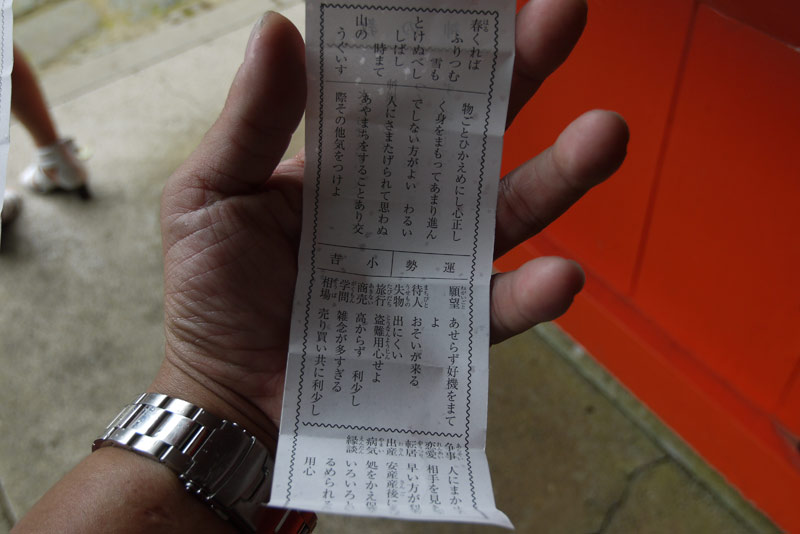 春くれば
ふりつむ
雪も
とけぬべし
しばし
時まて
山の
うぐいす
物ごとひかえめにし心正し
く身をまもってあまり進ん
でしない方がよい わるい
人にさまたげられて思わぬ
あやまちをすることあり交
際その他気をつけよ
運勢 小吉
願望 あせらず好機をまて
よ
待人 おそいが来る
失物 出にくい
旅行 盗難用心せよ
商売 高からず 利少し
学問 雑念が多すぎる
相場 売り買い共に利少し
争事 人にまか
恋愛 相手を見
転居 早い方が
出産 安産産後に
病気 処をかえ
縁談 いろいろ
るめられる
用心